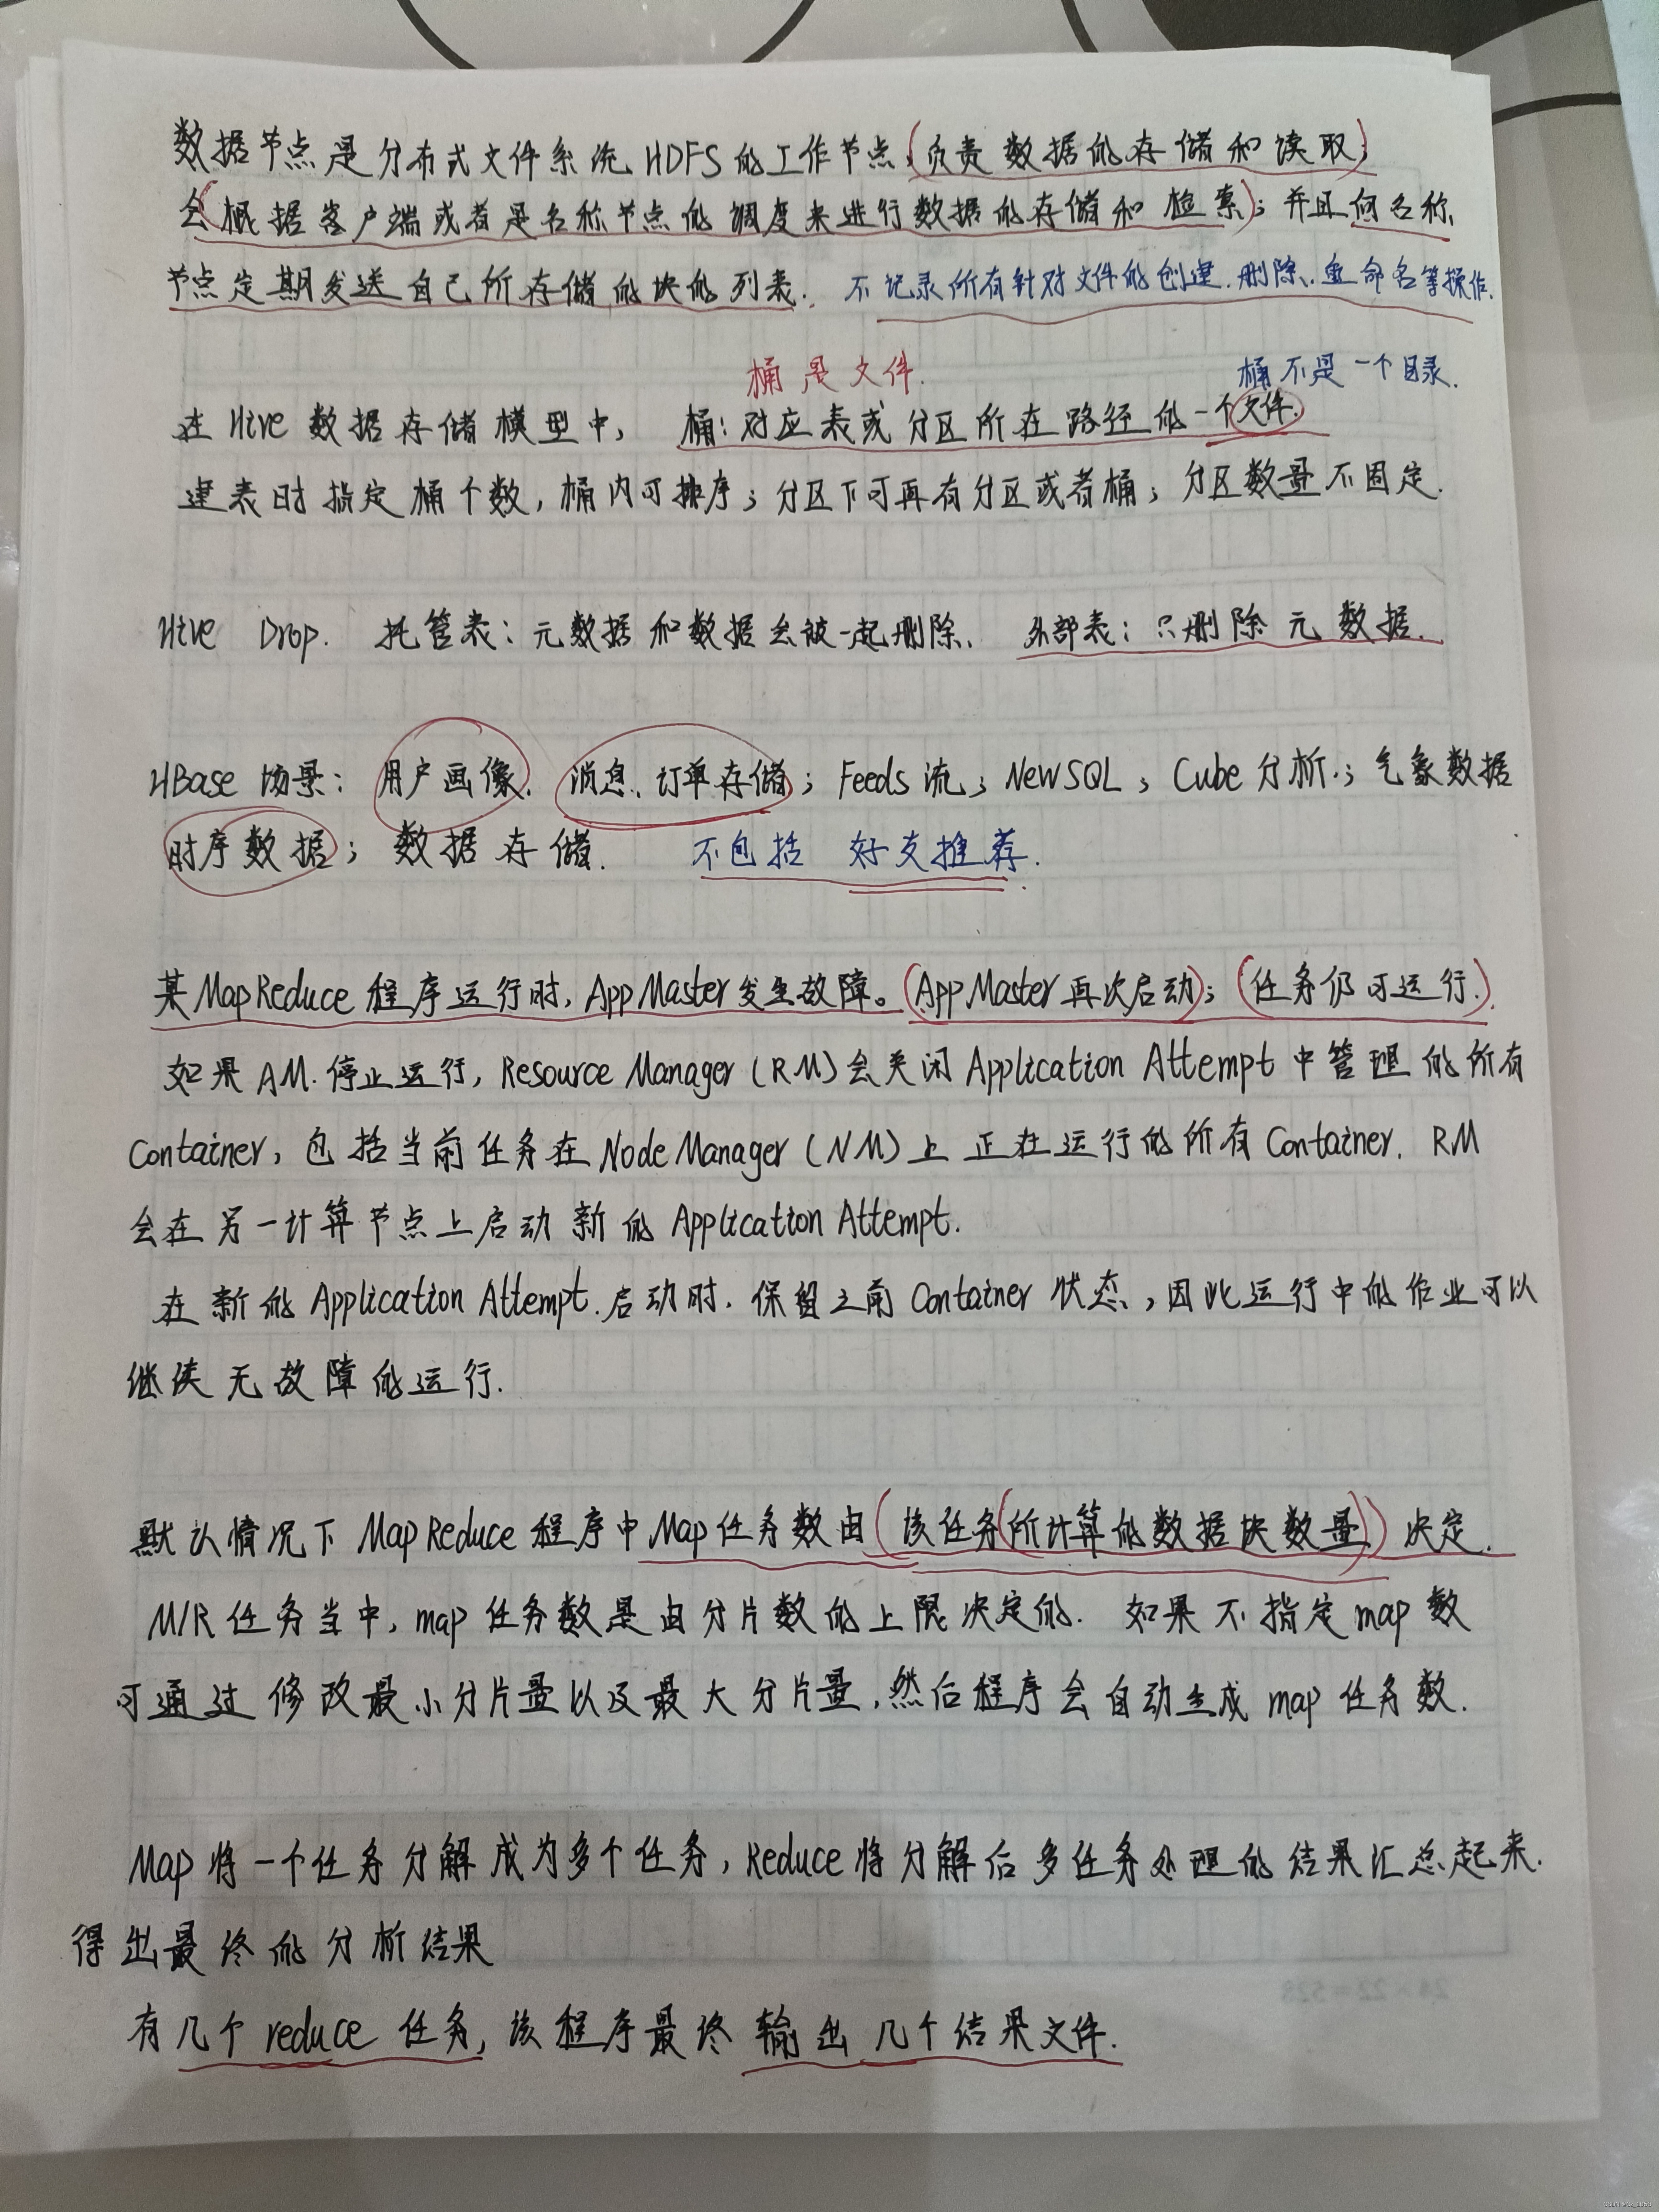 数据节点是分布式文件系统HDFS的工作节点,(负责数据的存储和读取)
会(根据客户端或者是名称节点的调度来进行数据的存储和检索);并且向名称
节点定期发送自己所存储的块的列表. 不记录所有针对文件的创建.删除、重命名等操作.
桶是文件. 桶不是一个目录.
在Hive数据存储模型中, 桶:对应表或分区所在路径的一个文件.
建表时指定桶个数,桶内可排序;分区下可再有分区或者桶;分区数量不固定.
Hive Drop. 托管表:元数据和数据会被一起删除. 外部表:只删除元数据.
HBase 场景: 用户画像. 消息、订单存储; Feeds流; NewSQL; Cube分析.; 气象数据
时序数据; 数据存储. 不包括 好友推荐.
某MapReduce程序运行时, AppMaster发生故障。(AppMaster再次启动); (任务仍可运行.)
如果AM.停止运行, Resource Manager (RM)会关闭Application Attempt中管理的所有
Container, 包括当前任务在Node Manager (NM)上正在运行的所有Container. RM
会在另一计算节点上启动新的Application Attempt.
在新的Application Attempt.启动时. 保留之前Container状态,因此运行中的作业可以
继续无故障的运行.
默认情况下MapReduce程序中Map任务数由(该任务(所计算的数据块数量))决定.
M/R任务当中, map任务数是由分片数的上限决定的. 如果不指定map数
可通过修改最小分片量以及最大分片量,然后程序会自动生成map任务数.
Map将一个任务分解成为多个任务, Reduce将分解后多任务处理的结果汇总起来.
得出最终的分析结果
有几个reduce任务,该程序最终输出几个结果文件.
24×22=528